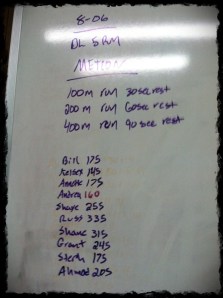 8-06
DL 5RM
METCON
100m run 30sec rest
200m run 60sec rest
400m run 90 sec rest
Bill 175
145
Annette 175
Andrea 160
255
Russ 335
Shane 315
Grant 245
175
Ahmed 205